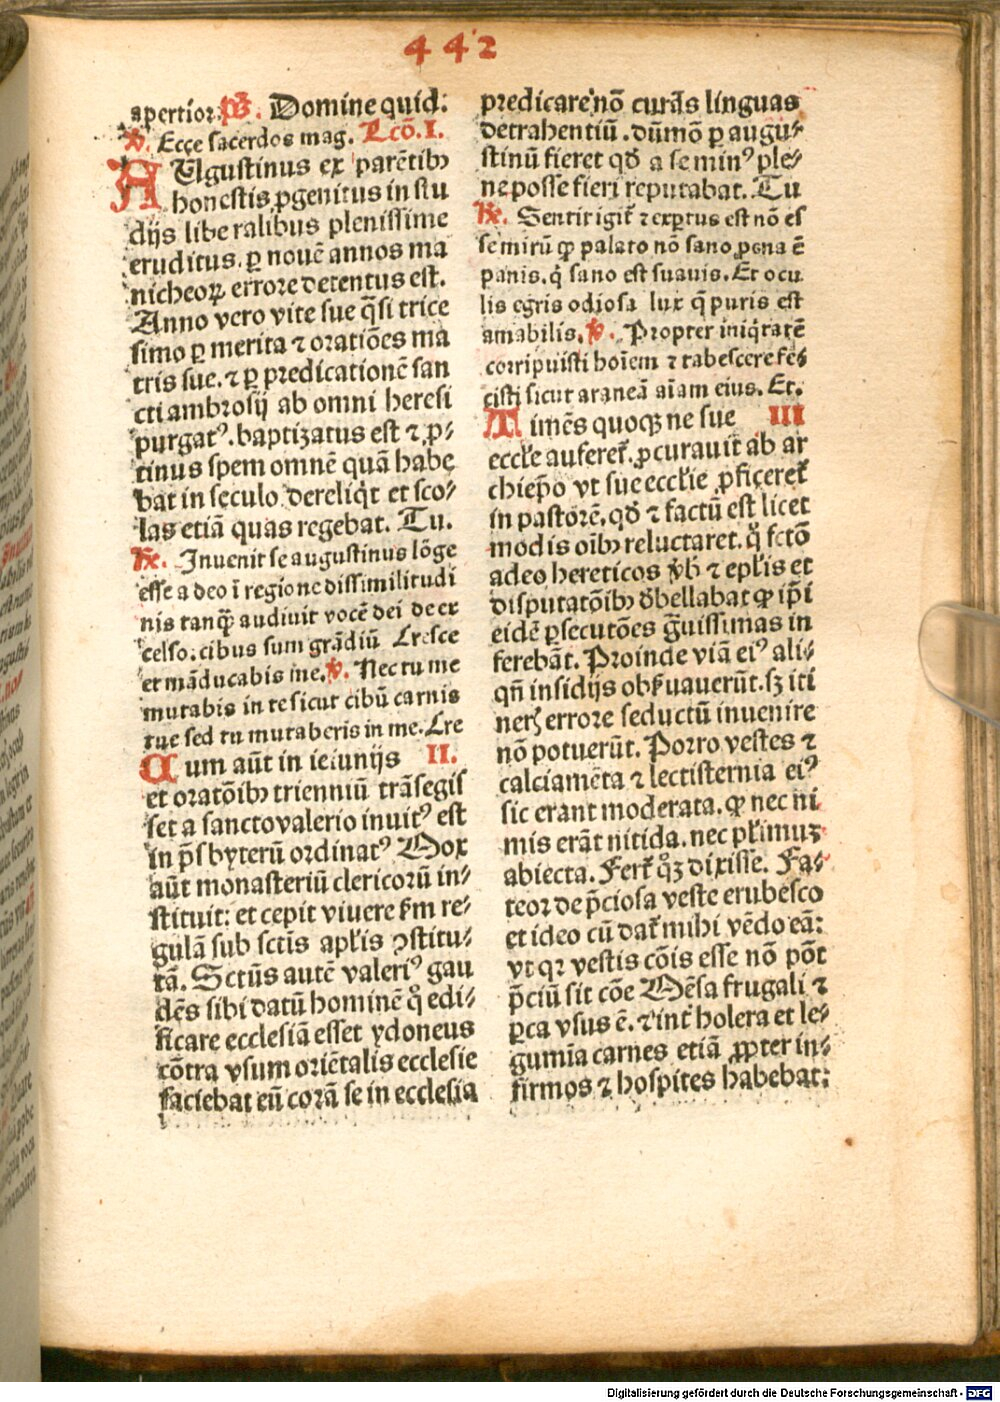 442
apertior. ps̄. Domine quid:
v. Ecce sacerdos mag. Lcō. I.
AUgustinus ex parētibꝫ
honestis ꝓgenitus in stu
dijs liberalibus plenissime
eruditus. ꝑ nouē annos ma
nicheoꝝ errore detentus est.
Anno vero vite sue q̄si trice
simo ꝑ merita ⁊ oratiōes ma
tris sue. ⁊ ꝑ predicationē san
cti ambrosij ab omni heresi
purgatꝰ. baptizatus est ⁊ ꝓ-
tinus spem omnē quā habe
bat in seculo dereliq̇t et sco-
las etiā quas regebat. Tu.
R̄. Inuenit se augustinus lōge
esse a deo ī regione dissimilitudi
nis tanq̄ȝ audiuit vocē dei de ex
celso: cibus sum grādiū Cresce
et māducabis me. v. Nec tu me
mutabis in te sicut cibū carnis
tue sed tu mutaberis in me. Cre
Cum aūt in ieiunijs II.
et oratōibꝫ trienniū trāsegis
set a sancto valerio inuitꝰ est
in p̄sbyterū ordinatꝰ Mox
aūt monasteriū clericorū in-
stituit: et cepit viuere ẜm re-
gulā sub sctīs apl̄is ꝯstitu-
tā. Sctūs autē valeriꝰ gau
dēs sibi datū hominē q̇ edi-
ficare ecclesiā esset ydoneus
cōtra vsum oriētalis ecclesie
faciebat eū corā se in ecclesia
predicare nō curās linguas
detrahentiū. dūmō ꝑ augu-
stinū fieret qd̄ a se minꝰ ple-
ne posse fieri reputabat. Tu
R̄. Sentit igit̄ ⁊ exꝑtus est nō es
se mirū ꝙ palato nō sano pena ē
panis. q̇ sano est suauis. Et ocu
lis egris odiosa lux q̄ puris est
amabilis. v. Propter iniq̇tatē
corripuisti hoīem ⁊ tabescere fe-
cisti sicut araneā aīam eius. Et.
Timēs quoqꝫ ne sue III
eccl̄e auferet̄. ꝓcurauit ab ar
chiep̄o vt sue eccl̄ie ꝓficeret̄
in pastorē. qd̄ ⁊ factū est licet
modis oībꝫ reluctaret. q̇ fctō
adeo hereticos v̄bꝫ ⁊ epl̄is et
disputatōibꝫ d̄bellabat ꝙ ip̄i
eidē ꝑsecutōes ḡuissimas in
ferebāt. Proinde viā eiꝰ ali-
qn̄ insidijs obẜuauerūt. sꝫ iti
neris errore seductū inuenire
nō potuerūt. Porro vestes ⁊
calciamēta ⁊ lectisternia eiꝰ
sic erant moderata. ꝙ nec ni
mis erāt nitida. nec pl̄imuꝫ
abiecta. Fert̄ q̇ꝫ dixisse. Fa-
teor de p̄ciosa veste erubesco
et ideo cū dat̄ mihi vēdo eā:
vt qꝛ vestis cōis esse nō pōt
p̄ciū sit cōe Mēsa frugali ⁊
ꝑca vsus ē. ⁊ int̄ holera et le-
gumīa carnes etiā ꝓpter in-
firmos ⁊ hospites habebat:
Digitalisierung gefördert durch die Deutsche Forschungsgemeinschaft - DFG